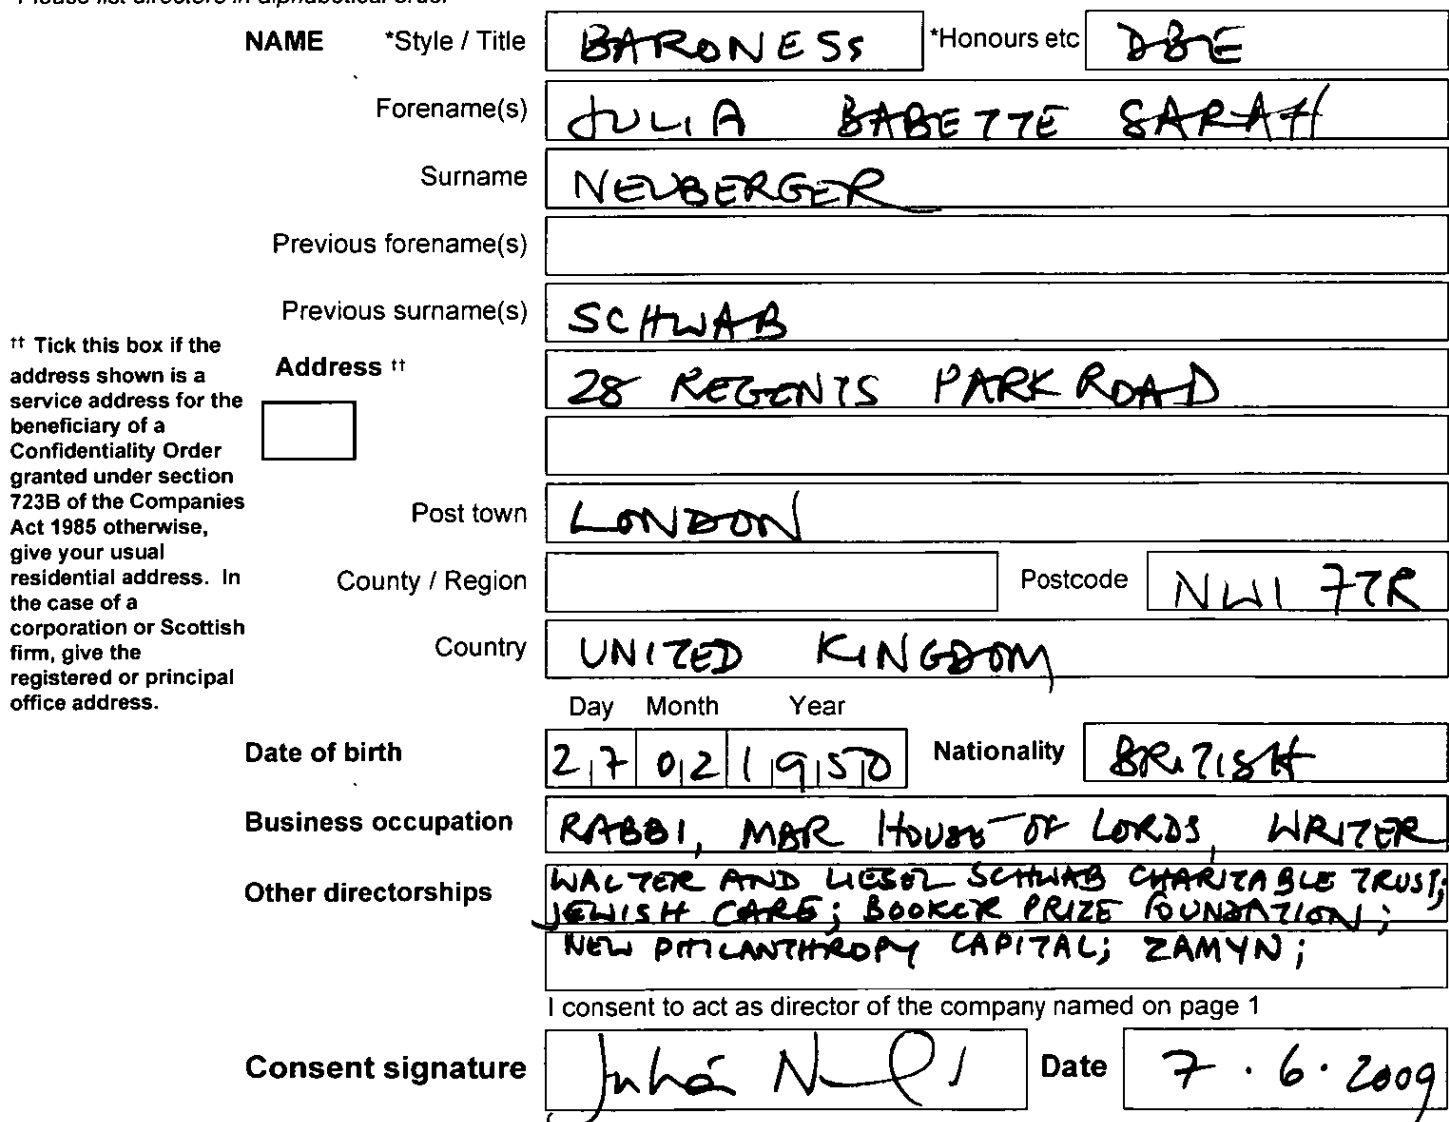 Please list directors in alphabetical order
NAME *Style / Title BARONESS *Honours etc DBE
Forename(s) JULIA BABETTE SARAH
Surname NEUBERGER
Previous forename(s)
Previous surname(s) SCHWAB
†† Tick this box if the
address shown is a
service address for the
beneficiary of a
Confidentiality Order
granted under section
723B of the Companies
Act 1985 otherwise,
give your usual
residential address. In
the case of a
corporation or Scottish
firm, give the
registered or principal
office address.
Address †† 28 REGENTS PARK ROAD
Post town LONDON
County / Region Postcode NW1 7TR
Country UNITED KINGDOM
Day Month Year
Date of birth 27 02 1950 Nationality BRITISH
Business occupation RABBI, MBR HOUSE OF LORDS, WRITER
Other directorships WALTER AND LIESEL SCHWAB CHARITABLE TRUST;
JEWISH CARE; BOOKER PRIZE FOUNDATION;
NEW PHILANTHROPY CAPITAL; ZAMYN;
I consent to act as director of the company named on page 1
Consent signature Julia Date 7.6.2009